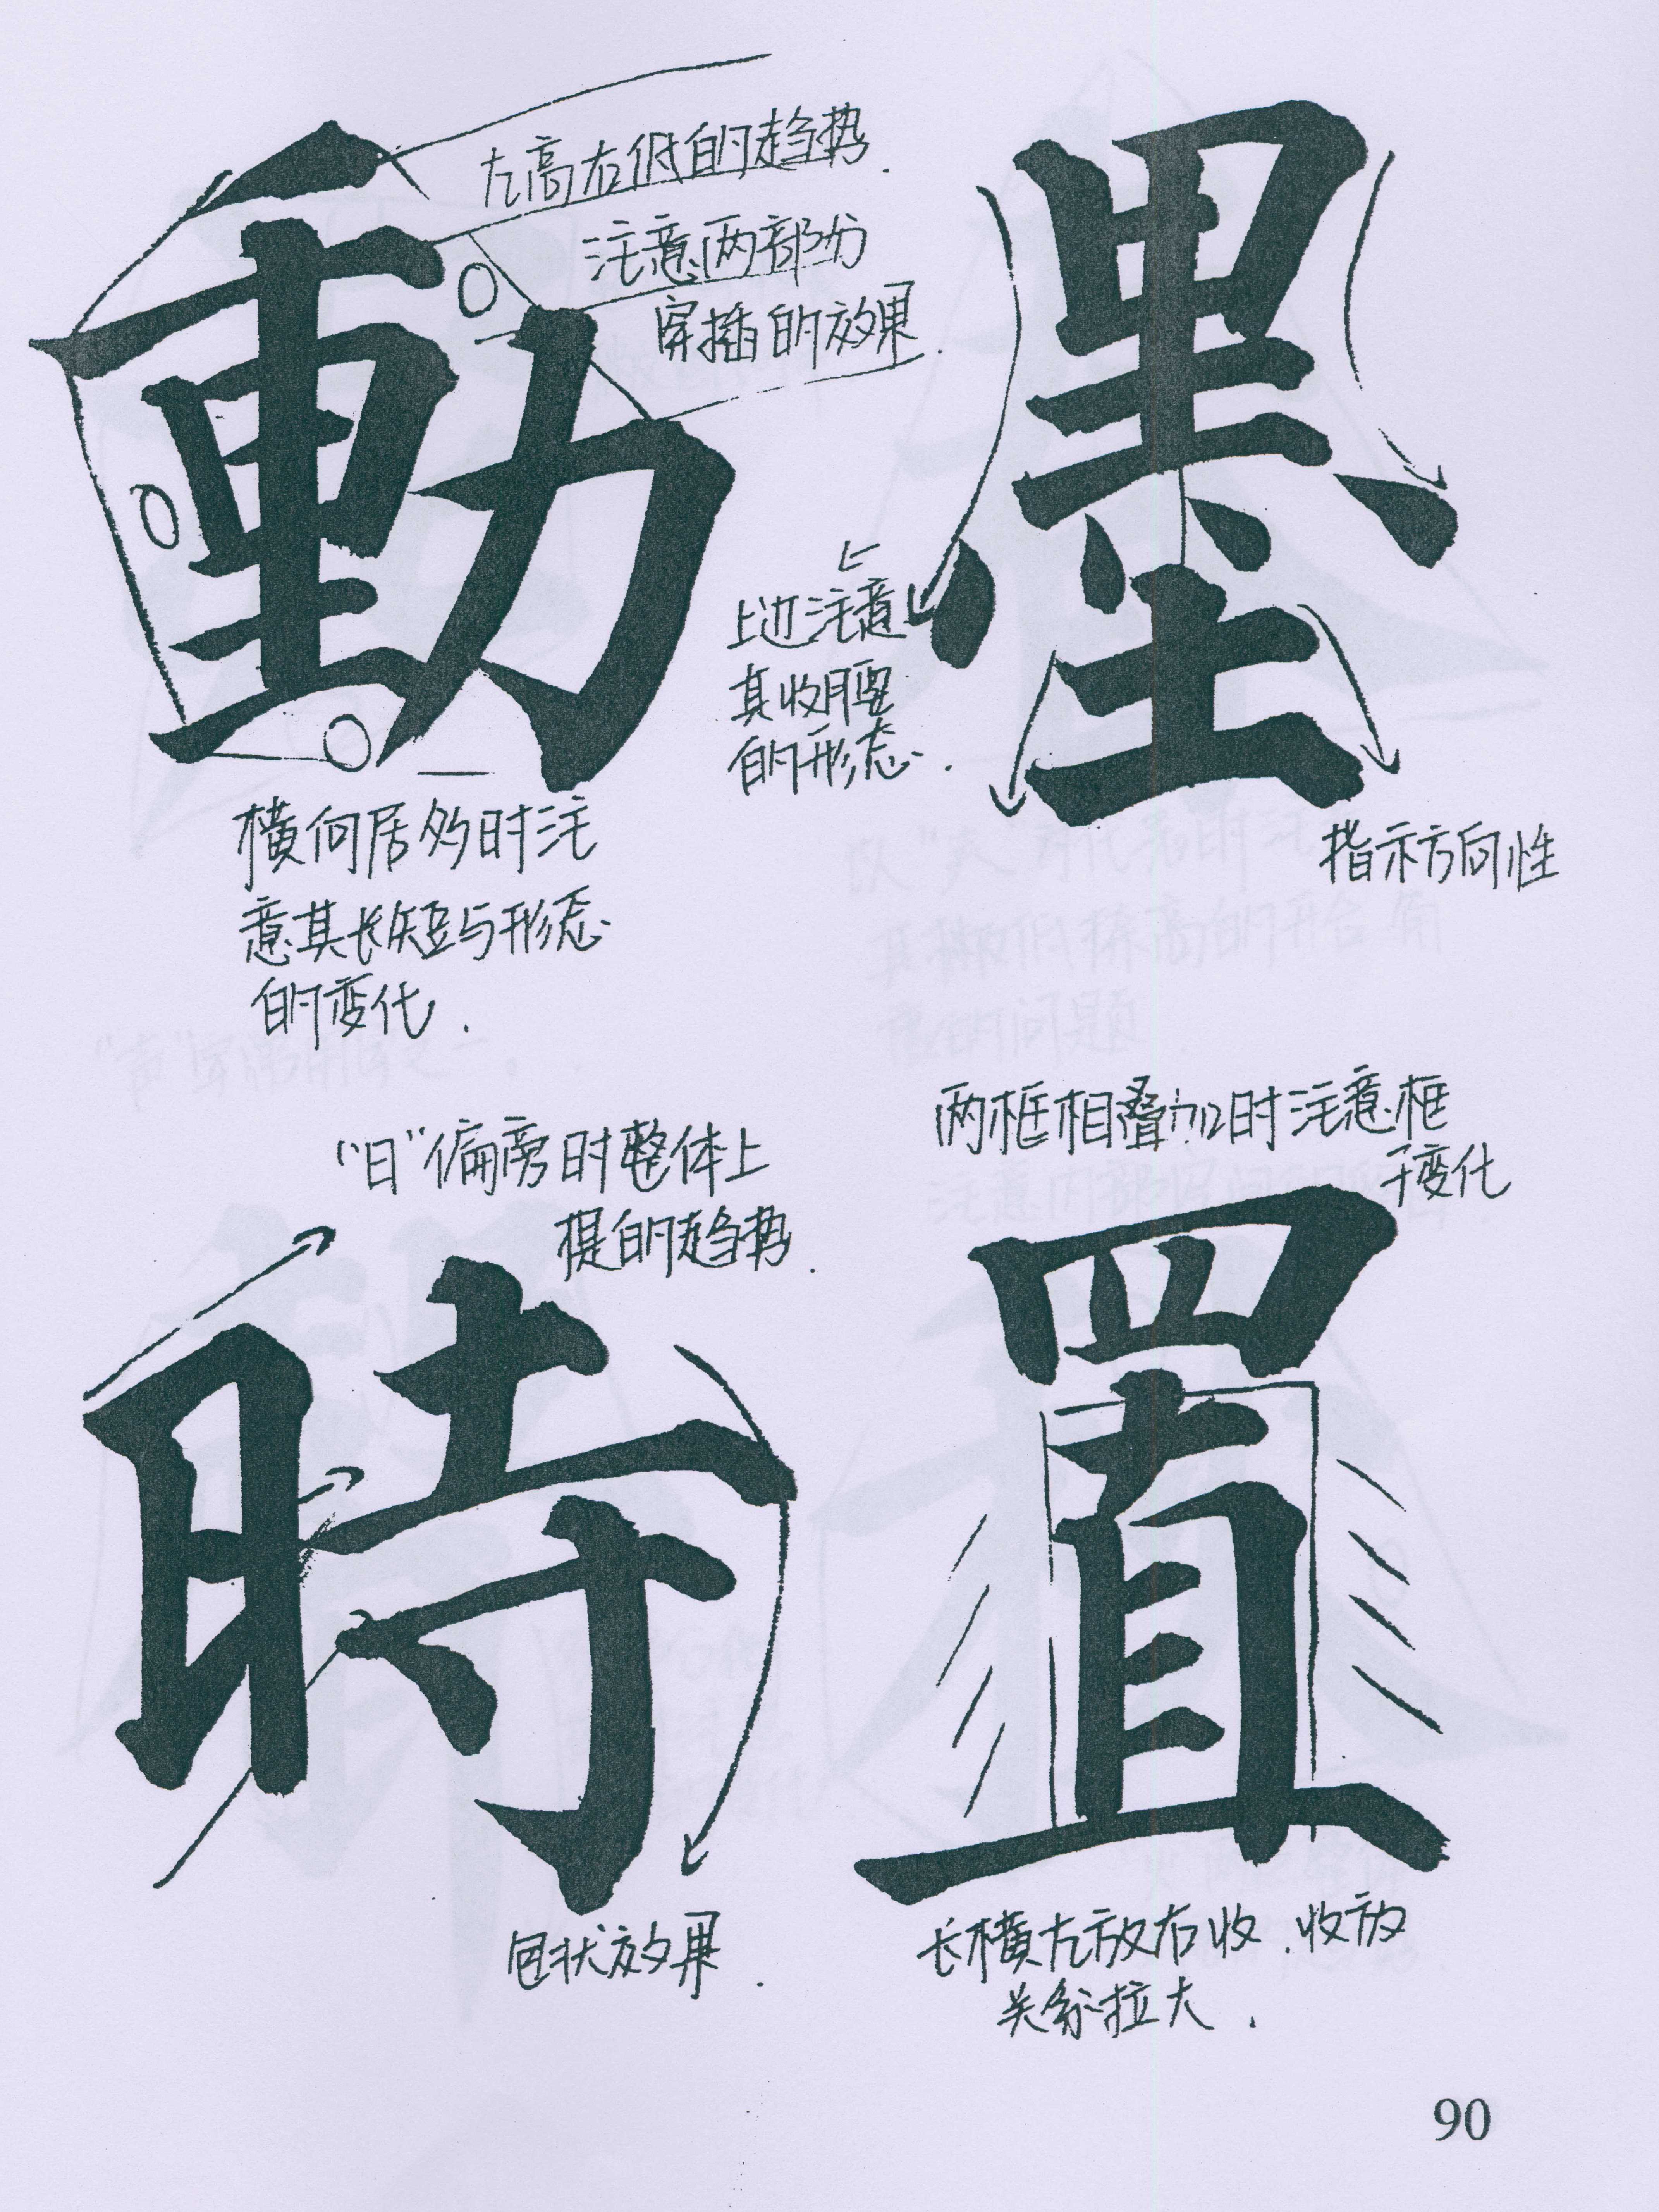 動
左高右低的趋势.
注意两部分
穿插的效果.
横向居多时注
意其长短与形态
的变化.
墨
上
上边注意
其收腰
的形态.
指示方向性
"日"偏旁时整体上
提的趋势.
時
包状效果.
两框相叠加时注意框
于变化
置
长横左放右收.收放
关系拉大.
90